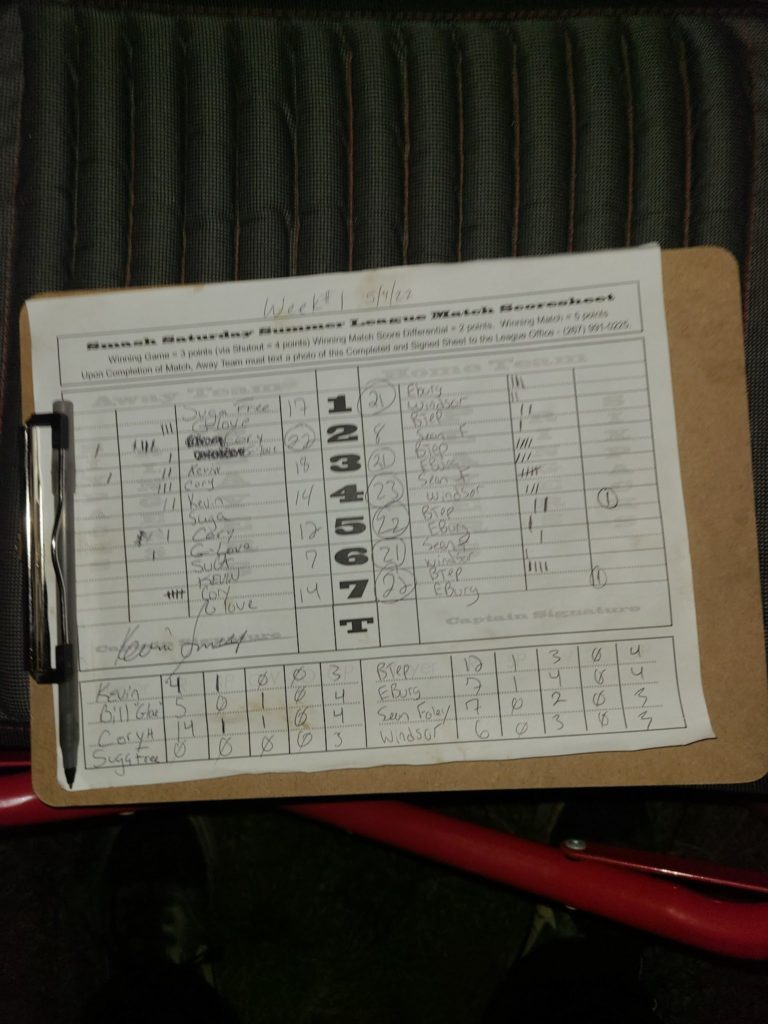 Week #1 5/4/22
Smash Saturday Summer League Match Scoresheet
Winning Game = 3 points (via Shutout = 4 points) Winning Match Score Differential = 2 points. Winning Match = 5 points
Upon Completion of Match, Away Team must text a photo of this Completed and Signed Sheet to the League Office - (267) 991-0225.
Away Team Home Team
Suga Free 17 1 21 Eburg
Glove Windsor
Cory 22 2 8 BJep
Sean F
Kevin 18 3 21 BJep
Cory EBurg
Kevin 14 4 23 Sean F
Suga Windsor
Cory 12 5 22 BJep
G-Love EBurg
SUGA 7 6 21 Sean F
KEVIN Windsor
Cory 14 7 22 BJep
Glove EBurg
T
Captain Signature Captain Signature
Kevin 4 1 0 0 3 BJep 12 1 3 0 4
Bill "Glove" 5 0 1 0 4 EBurg 7 1 4 0 4
Cory H 14 1 1 0 4 Sean Foley 7 0 2 0 3
Suga Free 0 0 0 0 3 Windsor 6 0 3 0 3